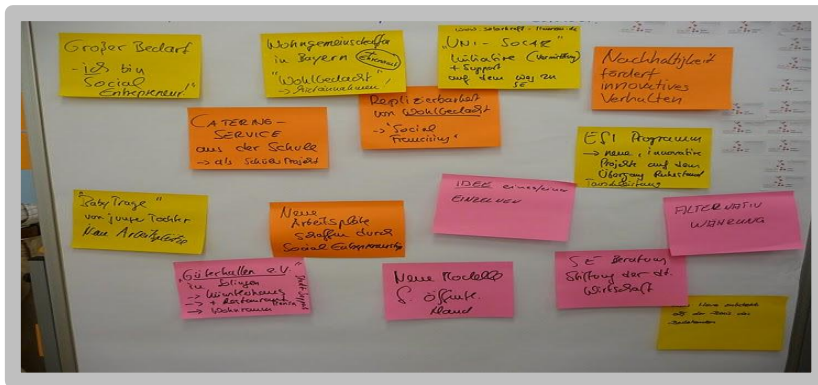 Großer Bedarf
- ich bin
Social
Entrepreneur!
Wohngemeinschaften
in Bayern
Ehrenamt
"Wohlbedacht"!
"UNI-SOLAR"
Initiative (Vermittlung)
+ Support
auf dem Weg zu
SE
Nachhaltigkeit
fördert
innovatives
Verhalten
CATERING-
SERVICE
aus der Schule
→ als Schülerprojekt
Replizierbarkeit
von Wohlbedacht
→ "Social
Francising"
EFI Programm
→ neue, innovative
Projekte auf dem
Übergang Ruhestand
"Baby Trage"
von junger Tochter
Neue Arbeitsplätze
Neue
Arbeitsplätze
schaffen durch
Social Entrepreneurship
IDEE eines/einer
EINZELNEN
ALTERNATIV
WÄHRUNG
"Güterhallen e.V."
in Solingen
→ Künstlerhaus
→ + Restaurant
→ Wohnraum
Neue Modelle
f. öffentl.
Hand
SE Beratung
Stiftung der dt.
Wirtschaft